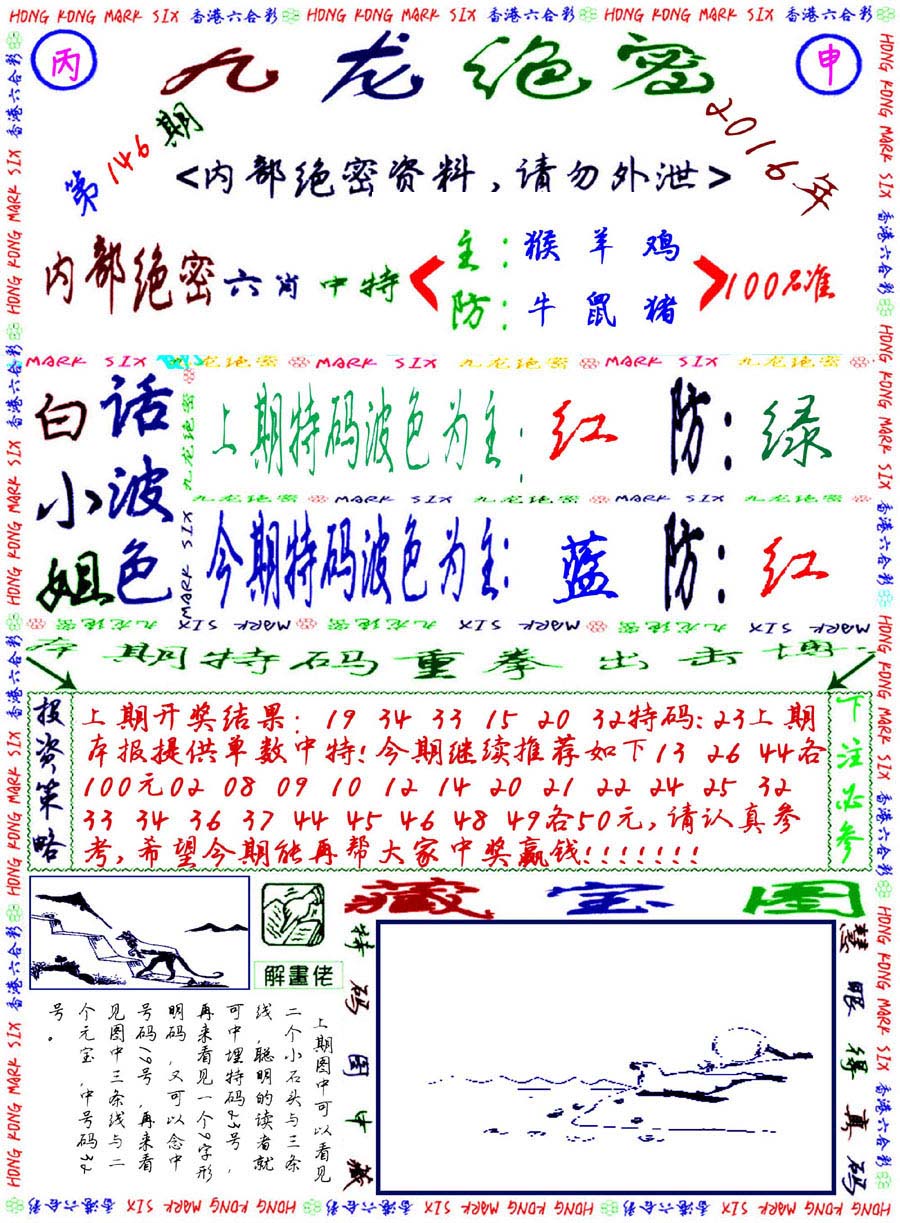 HONG KONG MARK SIX 香港六合彩 HONG KONG MARK SIX 香港六合彩 HONG KONG MARK SIX 香港六合彩
丙
九龙绝密
申
第146期
2016年
<内部绝密资料,请勿外泄>
内部绝密六肖中特
主:猴羊鸡
防:牛鼠猪
100%准
MARK SIX 九龙绝密 MARK SIX 九龙绝密 MARK SIX 九龙绝密
白话
小波
姐色
上期特码波色为主:红 防:绿
九龙绝密 MARK SIX 九龙绝密 MARK SIX 九龙绝密
今期特码波色为主:蓝 防:红
九龙绝密 MARK SIX 九龙绝密 MARK SIX 九龙绝密 MARK SIX
本期特码重拳出击博一
投资策略
上期开奖结果: 19 34 33 15 20 32特码:23上期
本报提供单数中特!今期继续推荐如下13 26 44各
100元02 08 09 10 12 14 20 21 22 24 25 32
33 34 36 37 44 45 46 48 49各50元,请认真参
考,希望今期能再帮大家中奖赢钱!!!!!!!
下注必参
藏宝图
解畫佬
特码图中藏
慧眼得真码
上期图中可以看见
二个小石头与三条
线,聪明的读者就
可中埋特码23号,
再来看见一个9字形
明码,又可以念中
号码19号,再来看
见图中三条线与二
个元宝,中号码32
号。
HONG KONG MARK SIX 香港六合彩 HONG KONG MARK SIX 香港六合彩 HONG KONG MARK SIX 香港六合彩